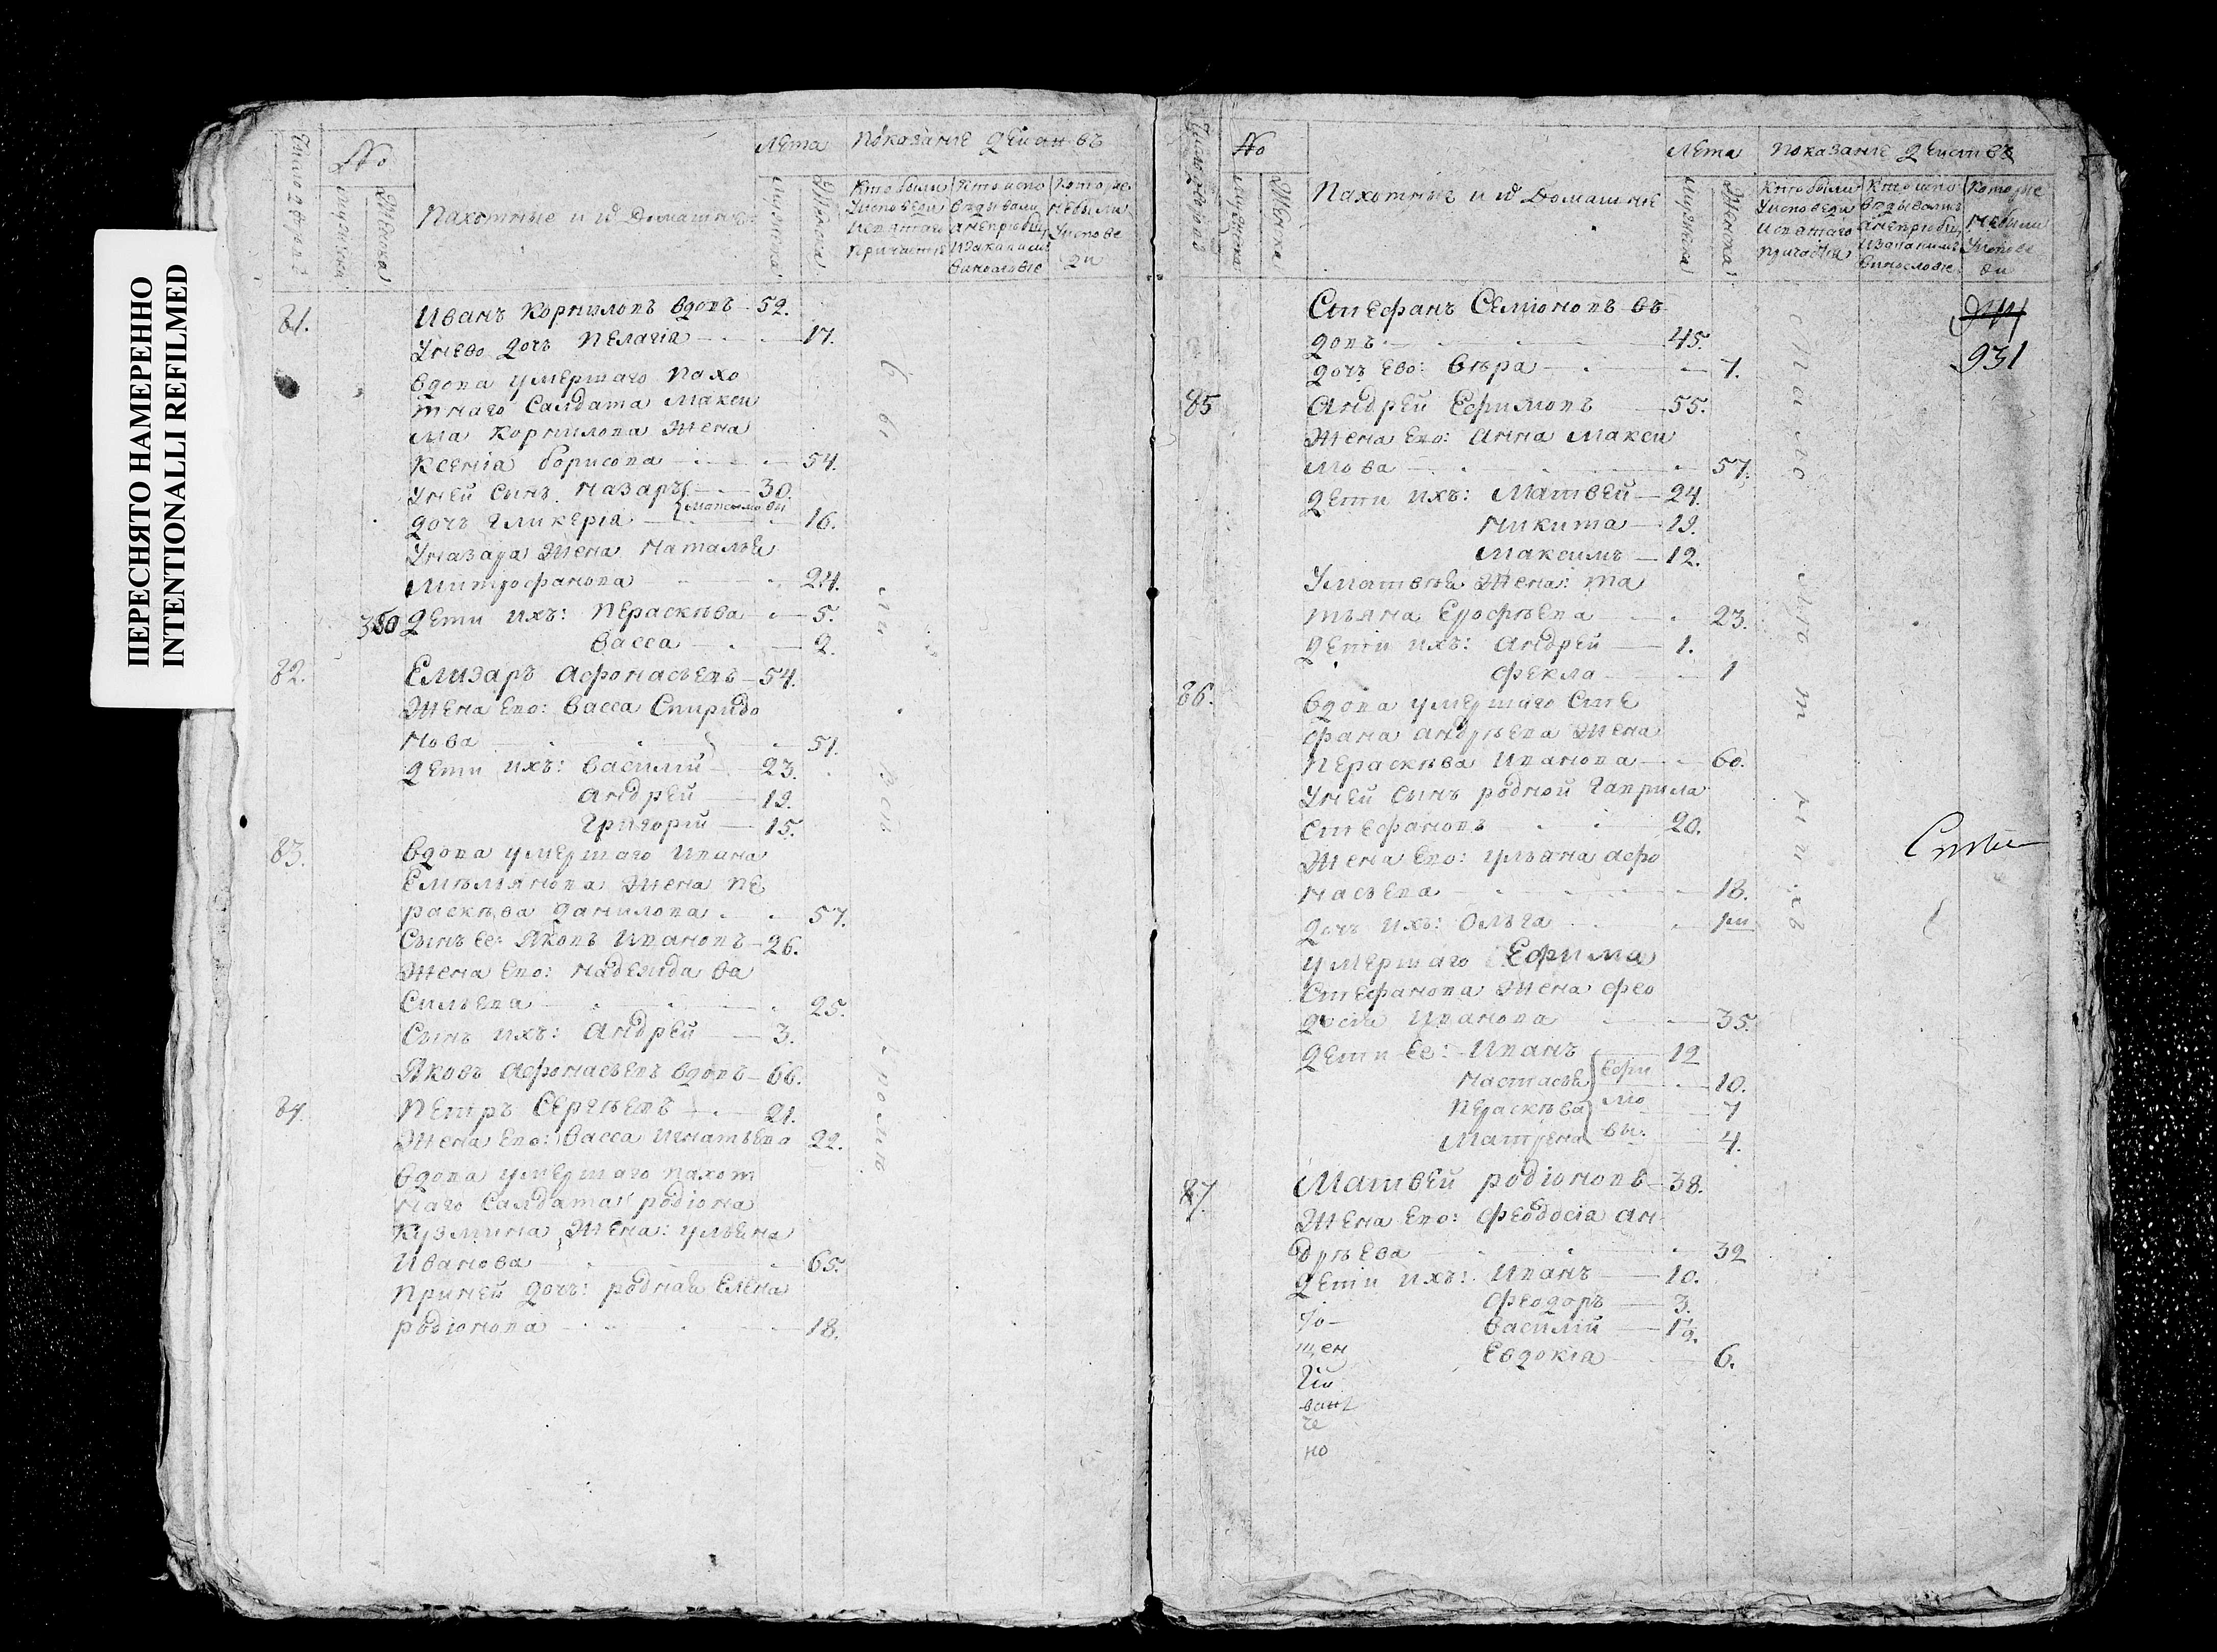 ПЕРЕСНЯТО НАМЕРЕННО
INTENTIONALLI REFILMED
Число дворовъ
№
Мужеска
Женска
Пахотные и их домашние
Лета
Мужеска
Женска
Показание действъ
Кто были у исповеди и святаго причастия
Кто испо ведывался а не приобщ и за каким винословие
Которые не были у исповеди
81. Иванъ Корниловъ вдовъ 52.
У нево дочь Пелагія 17.
вдова умершаго пахо
тнаго Салдата Макси
ма Корнилова жена
Ксенія Борисова 54.
У ней Сынъ Назаръ 30.
Максимовы
дочь Гликерія 16.
У Назара жена Наталья
Митрофанова 24.
380 Дети ихъ: Пераскѣва 5.
Васса 2.
82. Елизаръ Афонасьевъ 54.
Жена ево: Васса Спиридо
нова 51.
Дети ихъ: Василій 23.
Андрей 19.
Григорій 15.
83. Вдова умершаго Ивана
Емельянова жена Пе
раскѣва Данилова 57.
Сынъ ее: Яковъ Ивановъ 26.
Жена ево: Надежда Ва
сильева 25.
Сынъ ихъ: Андрей 3.
Яковъ Афонасьевъ вдовъ 66.
84. Петръ Сергѣевъ 21.
Жена ево: Васса Игнатьева 22.
Вдова умершаго пахот
наго Салдата Родіона
Кузмина жена: Ульяна
Иванова 65.
При ней дочь: родная Елена
Родіонова 18.
Число дворовъ
№
Мужеска
Женска
Пахотные и их домашние
Лета
Мужеска
Женска
Показание действъ
Кто были у исповеди и святаго причастия
Кто испо ведывался а не приобщ и за каким винословие
Которые не были у исповеди
931
Стефанъ Семіоновъ въ
довъ 45.
дочь ево: Вѣра 7.
85 Андрей Ефимовъ 55.
Жена ево: Анна Макси
мова 57.
Дети ихъ: Матвей 24.
Никита 19.
Максимъ 12.
У Матвѣя жена: Та
тьяна Ерофѣева 23.
Дети ихъ: Андрей 1.
Фекла 1
86. Вдова умершаго Сте
фана Андрѣева жена
Пераскѣва Иванова 60.
У ней Сынъ родной Гаврила
Стефановъ 20.
Жена ево: Ульяна Афо
насьева 18.
Дочь ихъ: Ольга
умершаго Ефима
Стефанова жена Фео
досія Иванова 35.
Дети ее: Иванъ 12
Настасья 10.
Пераскѣва 7
Матрена 4.
Ефи
мо
вы.
87. Матвей Родіоновъ 38.
Жена ево: Феодосія Ан
дрѣева 32
Дети ихъ: Иванъ 10.
Феодоръ 3.
Василій 1/2
Евдокія 6.